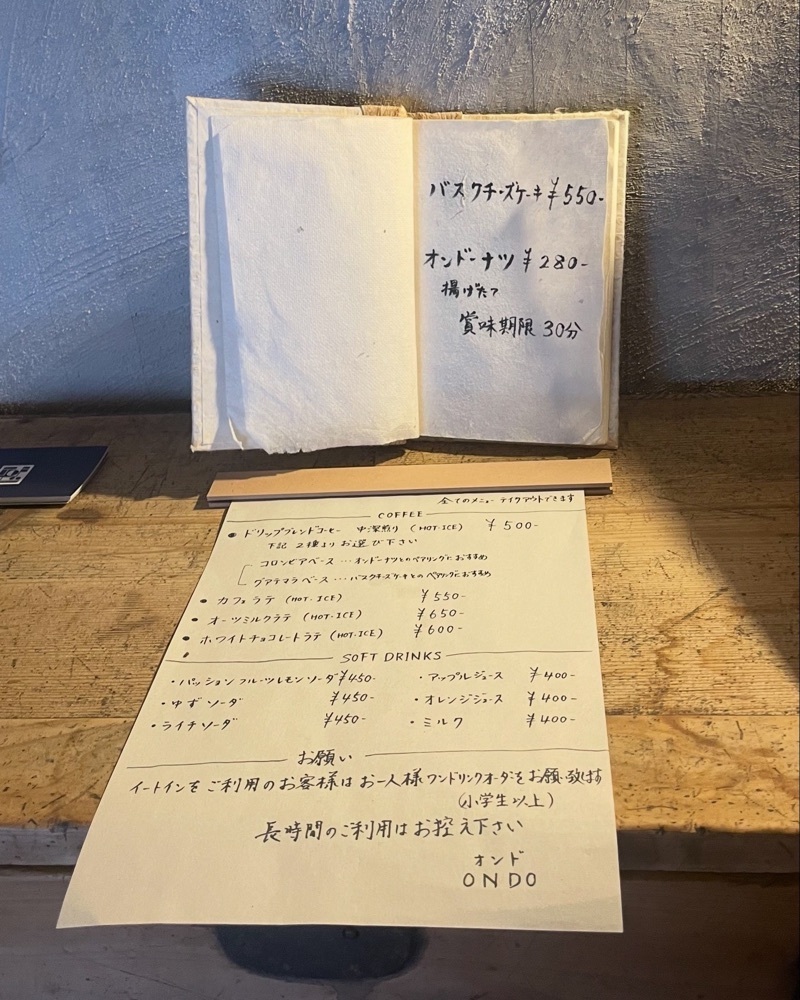 バスクチーズケーキ ¥550-
オンドーナツ ¥280-
揚げたて
賞味期限 30分
全てのメニュー テイクアウトできます
COFFEE
• ドリップブレンドコーヒー 中深煎り (HOT・ICE) ¥500-
下記 2種よりお選び下さい
コロンビアベース … オンドーナツとのペアリングにおすすめ
グアテマラベース … バスクチーズケーキとのペアリングにおすすめ
• カフェラテ (HOT・ICE) ¥550-
• オーツミルクラテ (HOT・ICE) ¥650-
• ホワイトチョコレートラテ (HOT・ICE) ¥600-
SOFT DRINKS
・パッションフルーツレモンソーダ ¥450-
・アップルジュース ¥400-
・ゆずソーダ ¥450-
・オレンジジュース ¥400-
・ライチソーダ ¥450-
・ミルク ¥400-
お願い
イートインをご利用のお客様はお一人様ワンドリンクオーダーをお願い致します
(小学生以上)
長時間のご利用はお控え下さい
オンド
ONDO